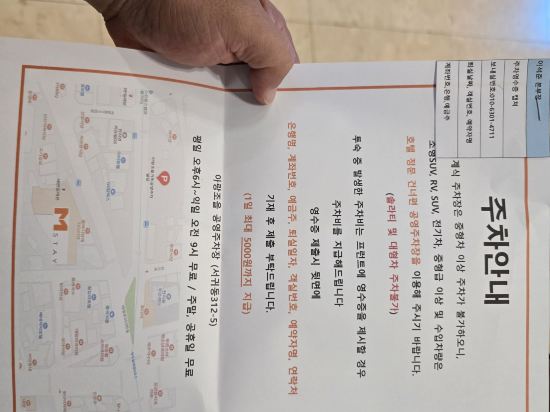 주차안내
계식 주차장은 중형차 이상 주차가 불가하오니,
소형SUV, RV, SUV, 전기차, 중형급 이상 및 수입차량은
호텔 정문 건너편 공영주차장을 이용해 주시기 바랍니다.
(솔라티 및 대형차 주차불가)
투숙 중 발생한 주차비는 프런트에 영수증을 제시할 경우
주차비를 지급해드립니다
영수증 제출시 뒷면에
은행명, 계좌번호, 예금주, 퇴실일자, 객실번호, 예약자명, 연락처
기재 후 제출 부탁드립니다.
(1일 최대 5000원까지 지급)
아랑조을 공영주차장 (서귀동312-5)
평일 오후6시~익일 오전 9시 무료 / 주말, 공휴일 무료
이석준 본부장
주차영수증 캡쳐
보내실번호:010-6301-4711
퇴실날짜, 객실번호, 예약자명
계좌번호,은행,예금주
M
STAY
P